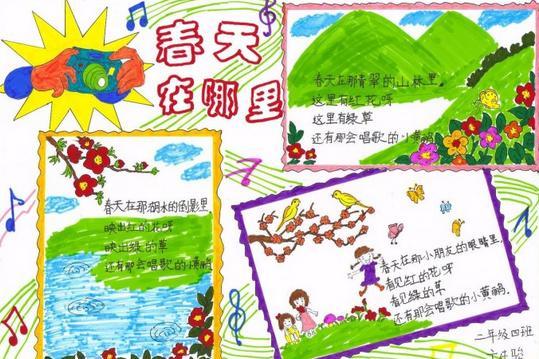 春天
在哪里
春天在那青翠的山林里
这里有红花呀
这里有绿草
还有那会唱歌的小黄鹂
春天在那湖水的倒影里
映出红的花呀
映出绿的草
还有那会唱歌的小黄鹂
春天在那小朋友的眼睛里
看见红的花呀
看见绿的草
还有那会唱歌的小黄鹂.
二年级四班